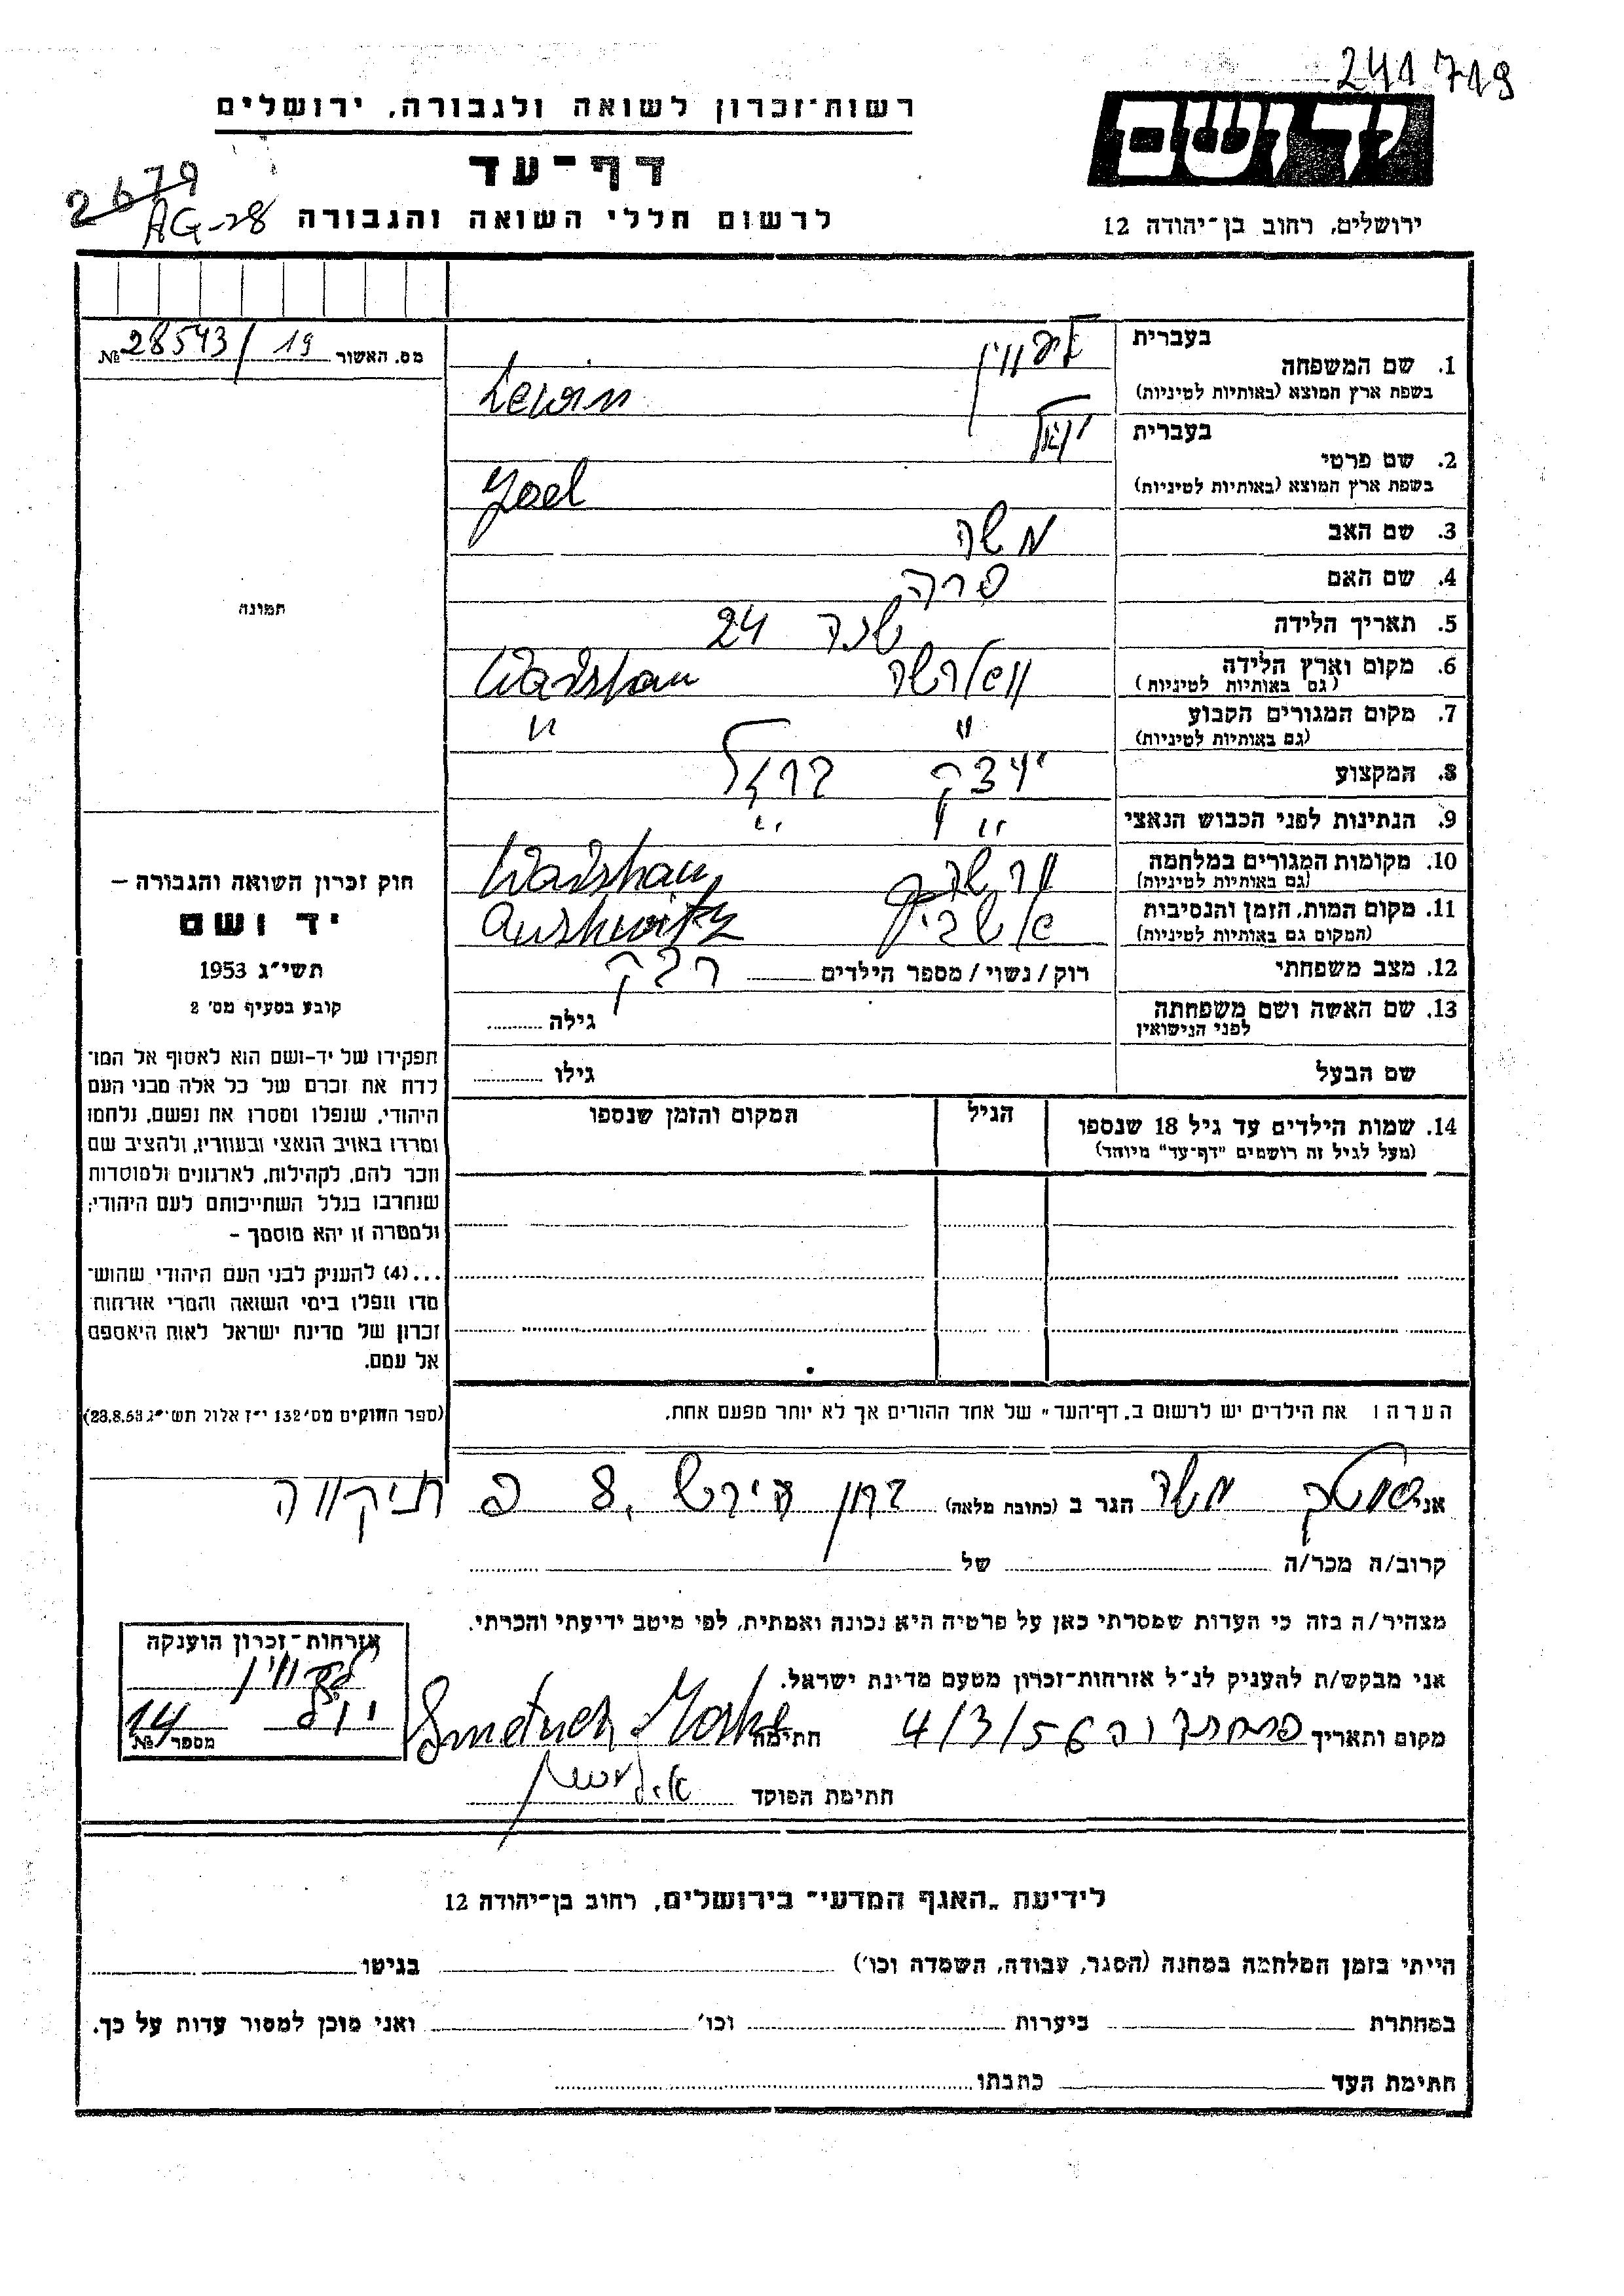 241719
רשות-זכרון לשואה ולגבורה, ירושלים
יד ושם
דף-עד
2679
AG-28
לרשום חללי השואה והגבורה
ירושלים, רחוב בן-יהודה 12
מס. האשור 28543/19 №
בעברית
1. שם המשפחה
בשפת ארץ המוצא (באותיות לטיניות) Lewin
בעברית יואל
2. שם פרטי
בשפת ארץ המוצא (באותיות לטיניות) Joel
3. שם האב משה
4. שם האם שרה
5. תאריך הלידה שנה 24
6. מקום וארץ הלידה ווארשה Warshaw
(גם באותיות לטיניות)
7. מקום המגורים הקבוע " "
(גם באותיות לטיניות)
8. המקצוע ברזל
9. הנתינות לפני הכבוש הנאצי
10. מקומות המגורים במלחמה ורשה Warshaw
(גם באותיות לטיניות)
11. מקום המות, הזמן והנסיבות Aushwitz
(המקום גם באותיות לטיניות)
12. מצב משפחתי רוק / נשוי / מספר הילדים רווק
13. שם האשה ושם משפחתה גילה
לפני הנישואין
שם הבעל גילו
14. שמות הילדים עד גיל 18 שנספו הגיל המקום והזמן שנספו
(מעל לגיל זה רושמים "דף-עד" מיוחד)
תמונה
חוק זכרון השואה והגבורה –
יד ושם
תשי"ג 1953
קובע בסעיף מס' 2
תפקידו של יד-ושם הוא לאסוף אל המו-
לדת את זכרם של כל אלה מבני העם
היהודי, שנפלו ומסרו את נפשם, נלחמו
ומרדו באויב הנאצי ובעוזריו, ולהציב שם
וזכר להם, לקהילות, לארגונים ולמוסדות
שנחרבו בגלל השתייכותם לעם היהודי;
ולמטרה זו יהא מוסמך –
...(4) להעניק לבני העם היהודי שהוש-
מדו ונפלו בימי השואה והמרי אזרחות
זכרון של מדינת ישראל לאות היאספם
אל עמם.
(ספר החוקים מס' 132 י"ז אלול תשי"ג 28.8.53)
הערה: את הילדים יש לרשום ב"דף-העד" של אחד ההורים אך לא יותר מפעם אחת.
אני משה הגר ב (כתובת מלאה) 8, פ תיקווה
קרוב/ה מכר/ה של
מצהיר/ה בזה כי העדות שמסרתי כאן על פרטיה היא נכונה ואמתית, לפי מיטב ידיעתי והכרתי.
אני מבקש/ת להעניק לנ"ל אזרחות-זכרון מטעם מדינת ישראל.
מקום ותאריך 4/3/56 חתימה
חתימת הפוקד
אזרחות-זכרון הוענקה
יואל
14 מספר №
לידיעת "האגף המדעי" בירושלים, רחוב בן-יהודה 12
הייתי בזמן המלחמה במחנה (הסגר, עבודה, השמדה וכו') בגיטו
במחתרת ביערות וכו' ואני מוכן למסור עדות על כך.
חתימת העד כתבתו